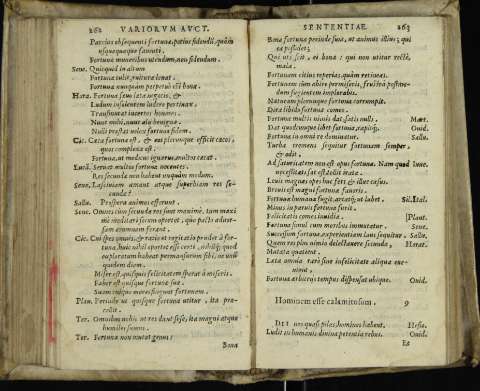 262 VARIORVM AVCT.
Parcius obsequenti fortunæ, potius fidendū, quàm
usquequaque fauenti.
Fortunæ muneribus utendum, non fidendum.
Sene. Quicquid in altum
Fortuna tulit, ruitura leuat.
Fortuna nunquam perpetuò est bona.
Hora. Fortuna sæuo læta negotio, &
Ludum insolentem ludere pertinax,
Transmutat incertos honores,
Nunc mihi, nunc alij benigna.
Nulli præstat uelox fortuna fidem.
Cic. Cæca fortuna est, & eos plerunque efficit cæcos,
quos complexa est.
Fortuna, ut medicus ignarus, multos cæcat.
Lucā. Seruat multos fortuna nocentes.
Res secundæ non habent nunquàm modum.
Sene. Lasciuiam amant atque superbiam res se-
cundæ.
Sallu. Prosperæ animos efferunt.
Sene. Omnes cùm secundæ res sunt maximè, tum maxi
mè meditari secum oportet, quo pacto aduer-
sam ærumnam ferant.
Cic. Cui spes omnis, & ratio et cogitatio pendet à for-
tuna, huic nihil potest esse certi, nihilq; quod
exploratum habeat permansurum sibi, ne unū
quidem diem.
Miser est, quisquis felicitatem sperat à miseris.
Faber est quisque fortunæ suæ.
Suam cuique mores fingunt fortunam.
Plau. Perinde ut quisque fortuna utitur, ita præ-
cellit.
Ter. Omnibus nobis ut res dant sese, ita magni atque
humiles sumus.
Ter. Fortuna non mutat genus.
Bona
SENTENTIAE. 263
Bona fortunæ perinde sunt, ut animus illius, qui
ea possidet;
Qui uti scit, ei bona: qui non utitur rectè,
mala.
Fortunam citius reperias, quàm retineas.
Fortunam cùm abire permiseris, frustrà postmo-
dum fugientem implorabis.
Naturam plerunque fortuna corrumpit.
Dura libido fortunæ comes.
Fortuna multis nimis dat, satis nulli. Mart.
Dat quodcunque libet fortuna, rapitq;. Ouid.
Fortuna in omni re dominatur. Sallu.
Turba tremens sequitur fortunæ semper,
& odit.
Ad saturitatem non est opus fortuna. Nam quod
necessitati sat est dolit irata. Iuue.
Leuis magnas opes huc fert & illuc casus.
Breuis est magni fortuna fauoris.
Fortunæ humana fingit, artatq; ut lubet. Sil. Ital.
Minus in paruis fortuna furit.
Felicitatis comes inuidia. [Plaut.
Fortuna simul cum moribus immutatur. Sene.
Successum fortuna, experientiam laus sequitur. Sallu.
Quem res plus nimio delectauere secundæ, Horat.
Mutatæ quatient.
Læta omnia rarò sine infelicitate aliqua eue-
niunt.
Fortuna arbitrijs tempus dispensat ubique. Ouid.
Hominem esse calamitosum. 9
DII nos quasi pilas, homines habent. Hesio.
Ludit in humanis diuina potentia rebus. Ouid.
Ex